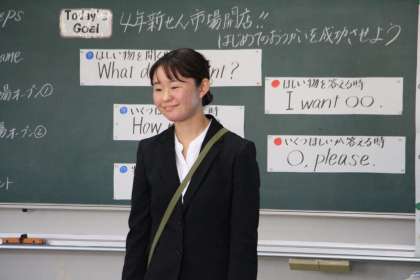 Today's
Goal
4年新せん市場開店!!
はじめてのおつかいを成功させよう
eps
ame
ほしい物を聞く
What d nt?
場オープン①
How
場オープン②
ほしい物を答える時
I want ○○.
いくつほしいか答える時
○, please.